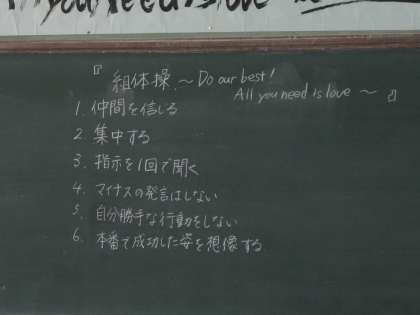 All you need is love
『組体操.～Do our best!
All you need is love～』
1. 仲間を信じる
2. 集中する
3. 指示を1回で聞く
4. マイナスの発言はしない
5. 自分勝手な行動をしない
6. 本番で成功した姿を想像する